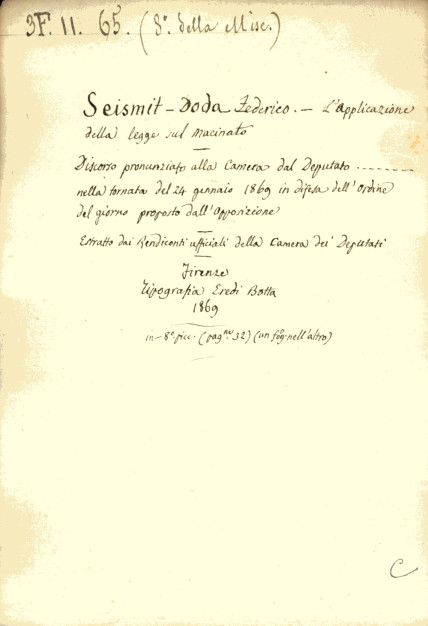 3F. 11. 65. (8º. della Misc.)
Seismit-Doda Federico. — L'Applicazione
della legge sul macinato
Discorso pronunziato alla Camera dal Deputato ........
nella tornata del 24 gennaio 1869 in difesa dell'Ordine
del giorno proposto dall'Opposizione
Estratto dai Rendiconti ufficiali della Camera dei Deputati
Firenze
Tipografia Eredi Botta
1869
in-8º. picc. (pagne. 32) (un fog. nell'altro)
C